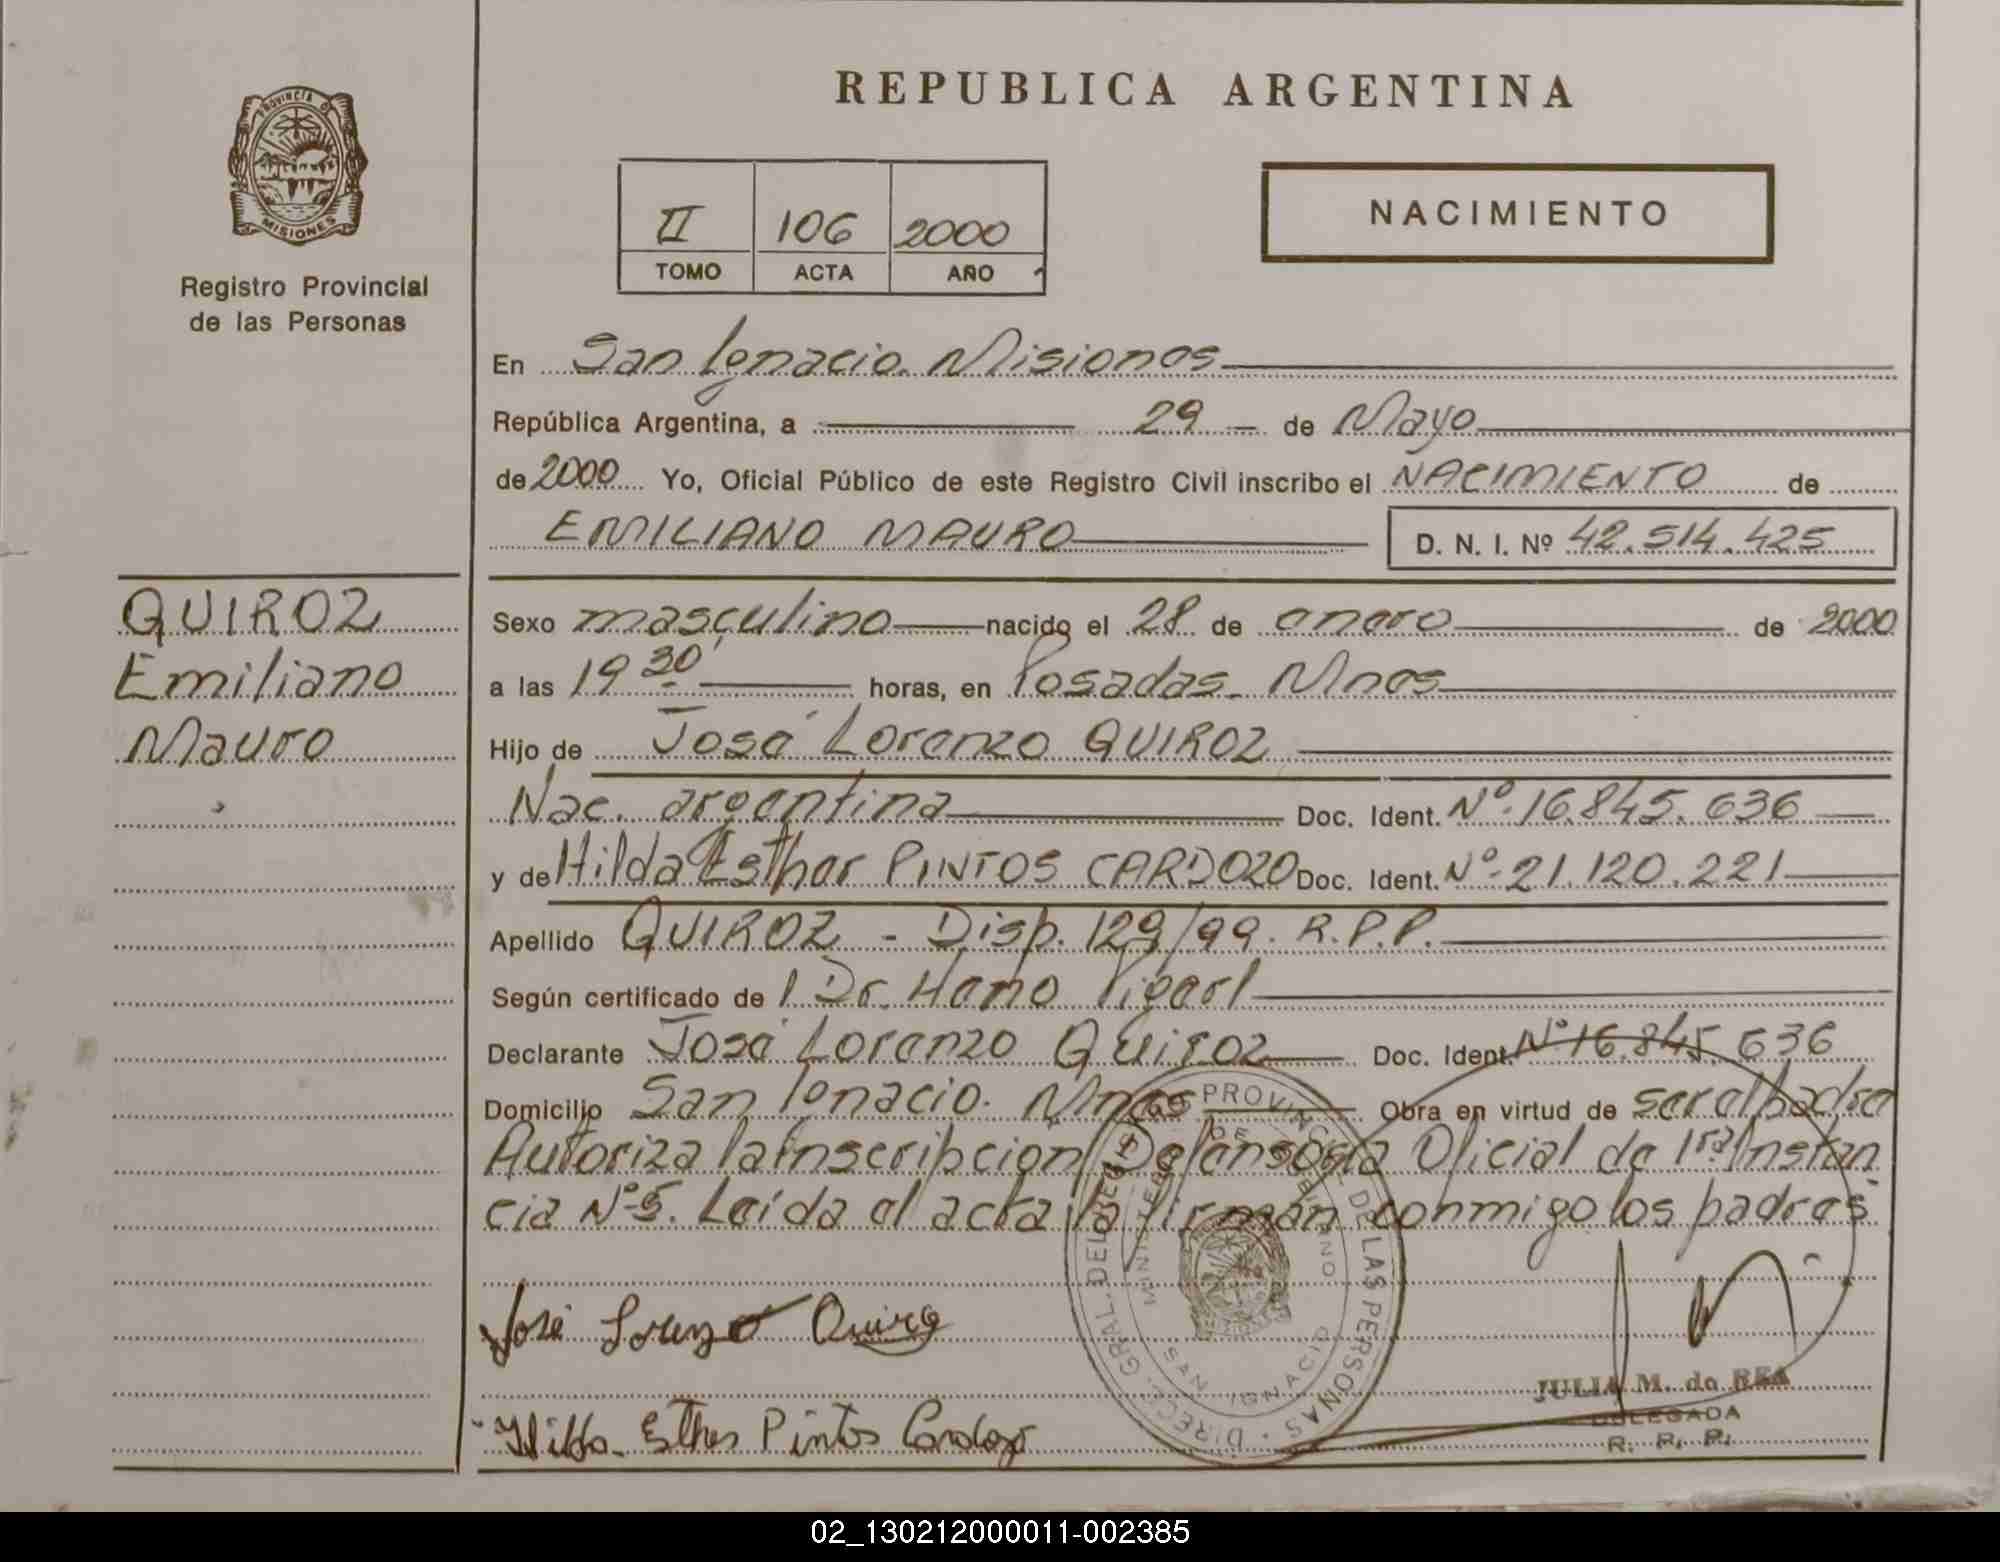 PROVINCIA DE
MISIONES
Registro Provincial
de las Personas
REPUBLICA ARGENTINA
II 106 2000
TOMO ACTA AÑO
NACIMIENTO
En San Ignacio. Misiones
República Argentina, a 29 de Mayo
de 2000 Yo, Oficial Público de este Registro Civil inscribo el NACIMIENTO de
EMILIANO MAURO D. N. I. Nº 42.514.425
QUIROZ
Emiliano
Mauro
Sexo masculino nacido el 28 de enero de 2000
a las 19 30' horas, en Posadas. Mnes
Hijo de José Lorenzo QUIROZ
Nac. argentina Doc. Ident. Nº 16.845.636
y de Hilda Esther PINTOS CARDOZO Doc. Ident. Nº 21.120.221
Apellido QUIROZ - Disp. 129/99. R.P.P.
Según certificado de Dr. Hamo
Declarante José Lorenzo Quiroz Doc. Ident. Nº 16.845.636
Domicilio San Ignacio. Mnes Obra en virtud de ser el padre
Autoriza la inscripción Defensoría Oficial de 1ra Instan
cia Nº 5. Leída el acta la firman conmigo los padres
José Lorenzo Quiroz
Hilda Esther Pintos Cardozo
DIREC. GRAL. DEL REG. PROVINCIAL DE LAS PERSONAS
MINISTERIO DE GOBIERNO
SAN IGNACIO
JULIA M. de REA
DELEGADA
R. P. P.
02_130212000011-002385